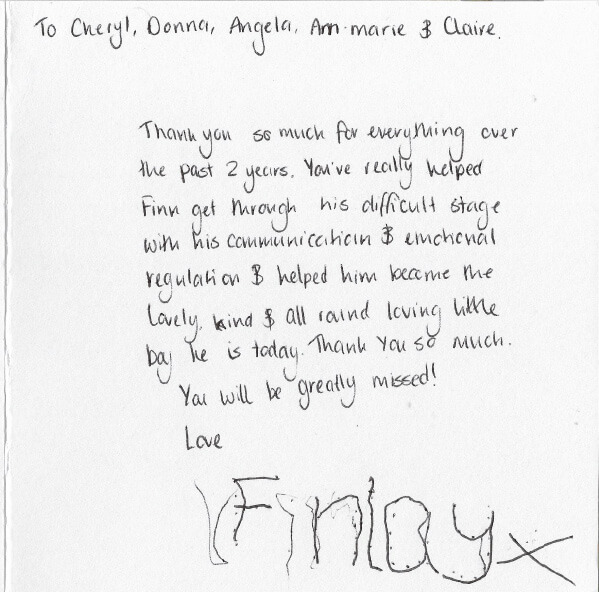 To Cheryl, Donna, Angela, Ann-marie & Claire.
Thank you so much for everything over
the past 2 years. You've really helped
Finn get through his difficult stage
with his communication & emotional
regulation & helped him become the
lovely, kind & all round loving little
boy he is today. Thank you so much.
You will be greatly missed!
Love
Finlay x